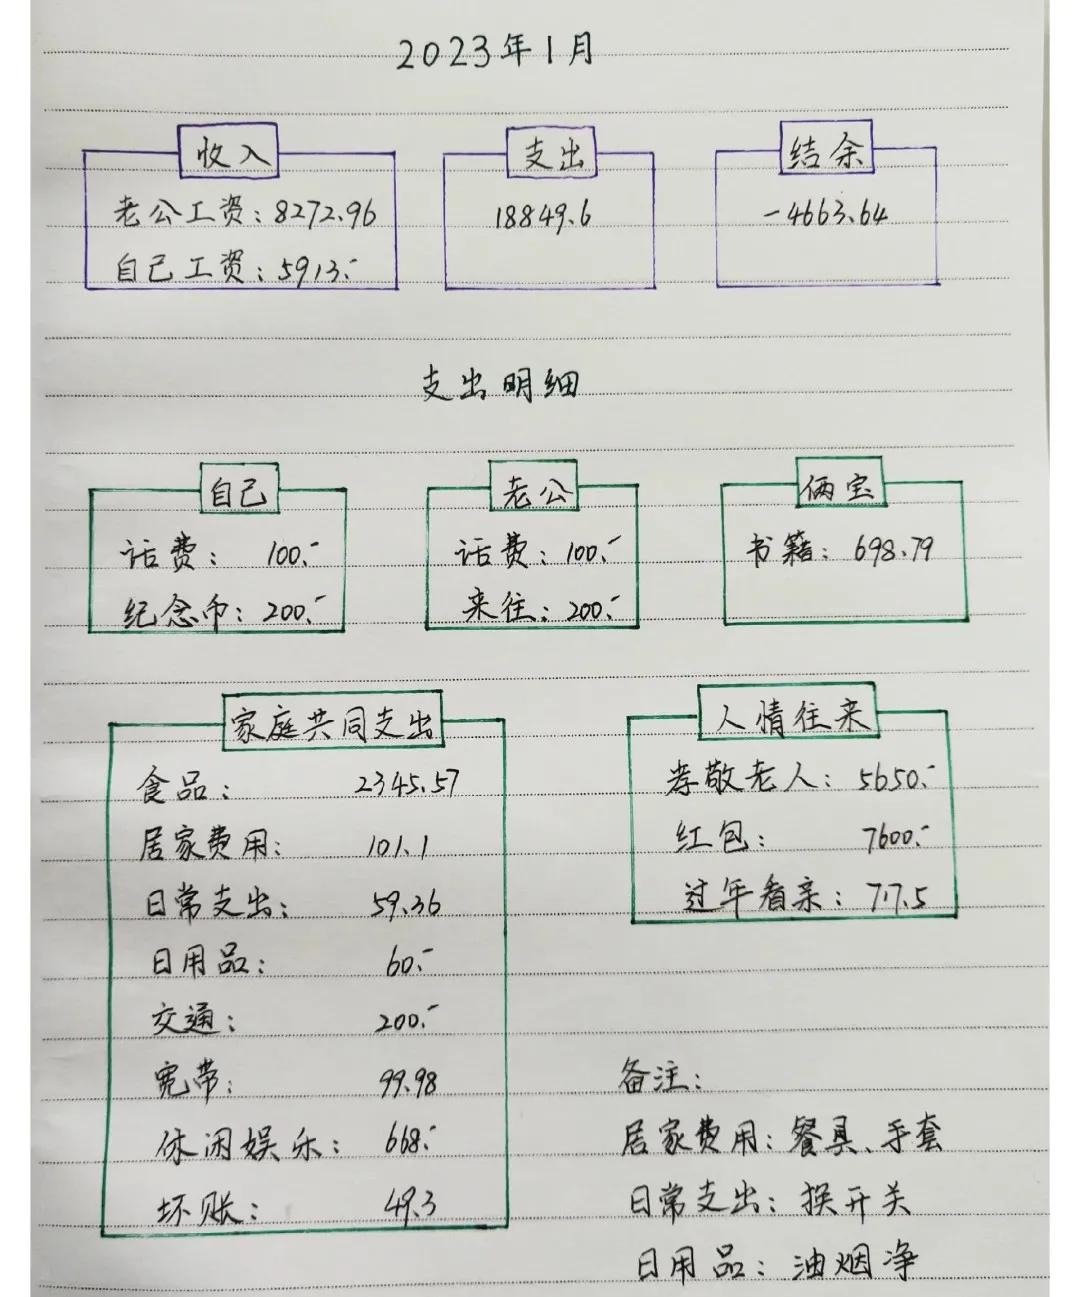 2023年1月
收入
老公工资：8272.96
自己工资：5913.-
支出
18849.6
结余
-4663.64
支出明细
自己
话费： 100.-
纪念币：200.-
老公
话费：100.-
来往：200.-
俩宝
书籍：698.79
家庭共同支出
食品： 2345.57
居家费用： 101.1
日常支出： 59.36
日用品： 60.-
交通： 200.-
宽带： 99.98
休闲娱乐： 668.-
坏账： 49.3
人情往来
孝敬老人：5650.-
红包： 7600.-
过年看亲：717.5
备注：
居家费用：餐具、手套
日常支出：换开关
日用品：油烟净